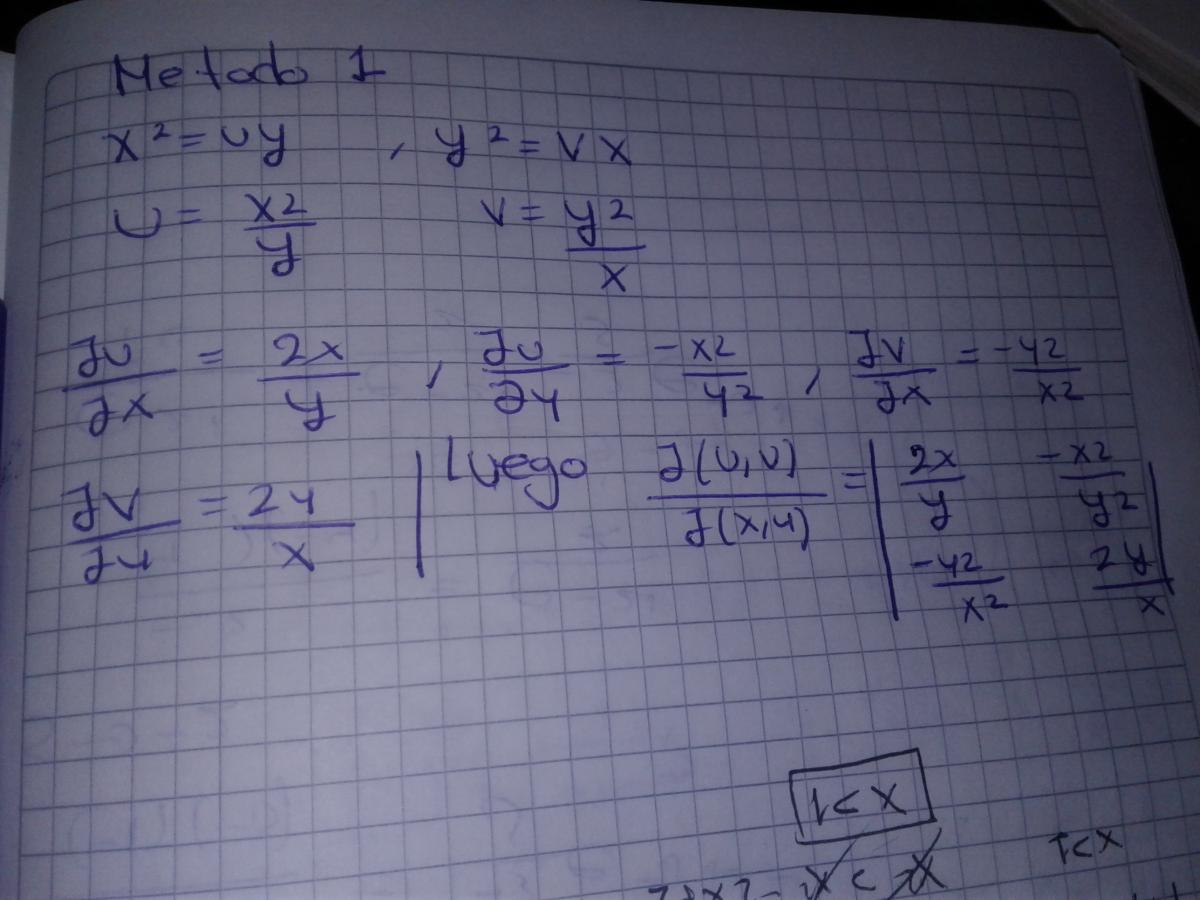 Metodo 1
x² = uy , y² = vx
u = x2/y v = y²/x
∂u/∂x = 2x/y , ∂u/∂y = -x2/y2 , ∂v/∂x = -y2/x2
∂v/∂y = 2y/x | Luego ∂(u,v)/∂(x,y) = | 2x/y -x2/y2 |
| -y2/x2 2y/x |
1<x
1<x